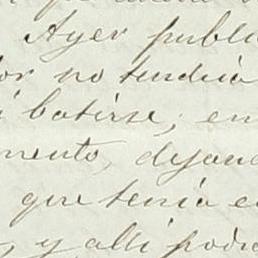 Ayer publi
or no tendria
batirse; en
mento, dejand
que tenia e
, y alli podia